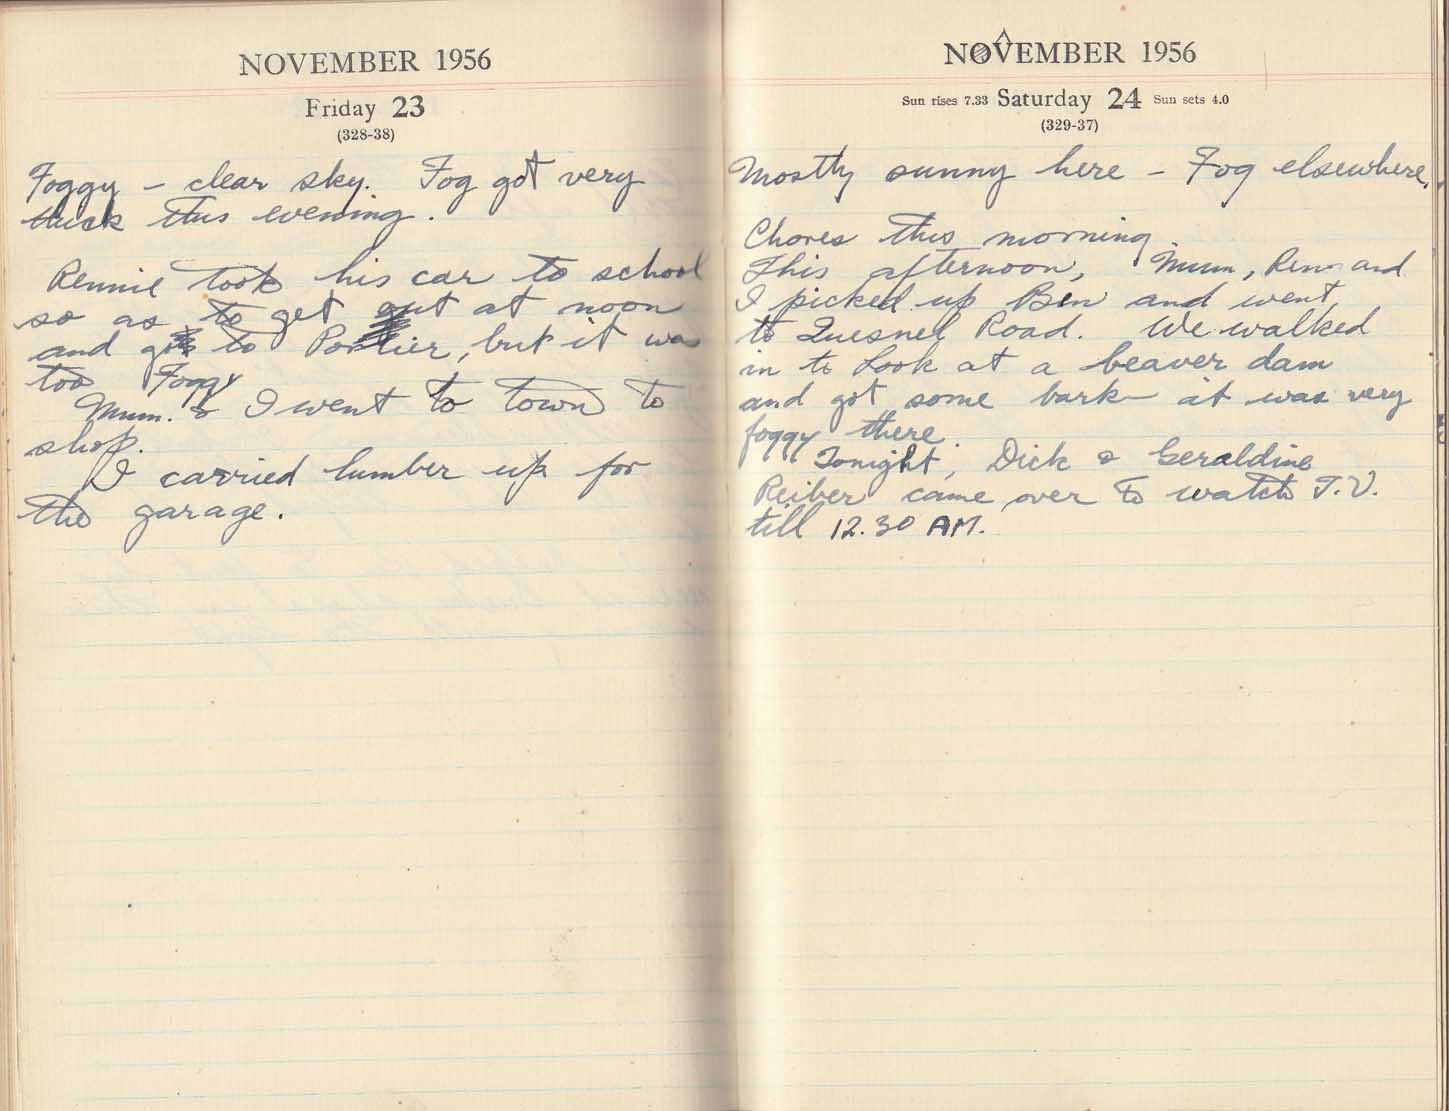 NOVEMBER 1956
Friday 23
(328-38)
Foggy – clear sky. Fog got very
thick this evening.
Rennie took his car to school
so as to get out at noon
and go to Porlier, but it was
too Foggy
Mum. & I went to town to
shop.
I carried lumber up for
the garage.
NOVEMBER 1956
Sun rises 7.33 Saturday 24 Sun sets 4.0
(329-37)
Mostly sunny here – Fog elsewhere.
Chores this morning.
This afternoon, Mum, Ren and
I picked up Ben and went
to Quesnel Road. We walked
in to look at a beaver dam
and got some bark – it was very
foggy there.
Tonight, Dick & Geraldine
Reiber came over to watch T.V.
till 12.30 AM.